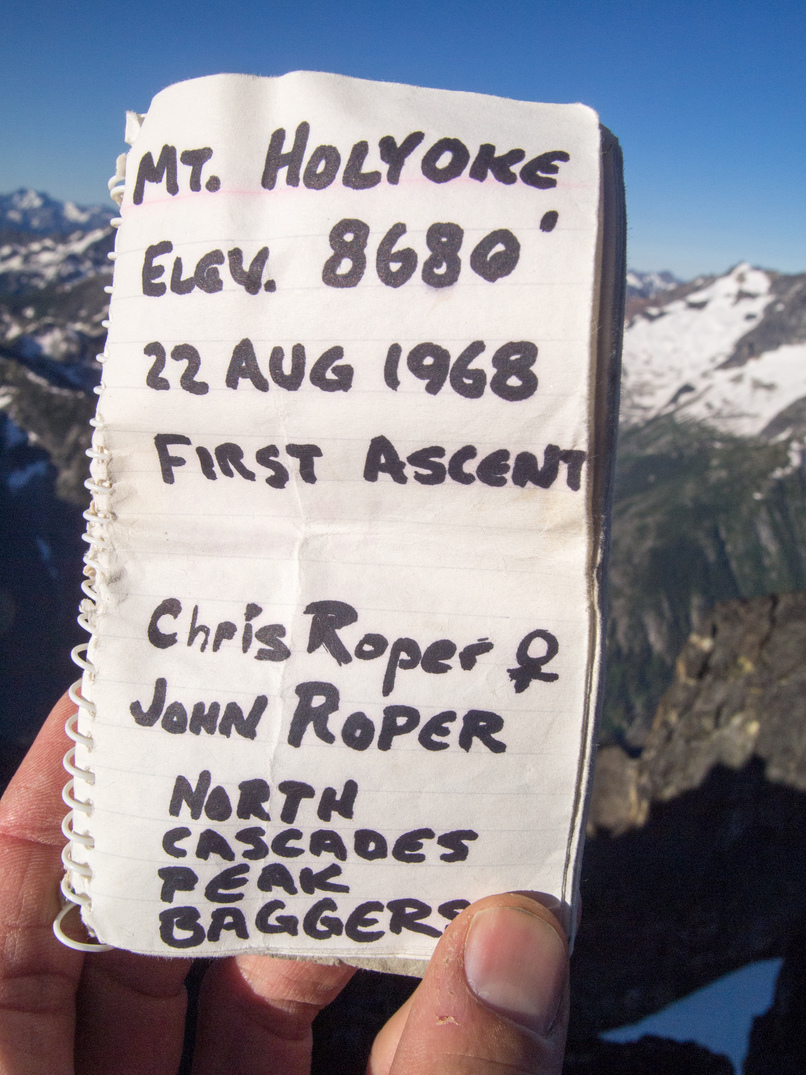 MT. HOLYOKE
ELEV. 8680'
22 AUG 1968
FIRST ASCENT
Chris Roper ♀
JOHN ROPER
NORTH
CASCADES
PEAK
BAGGERS